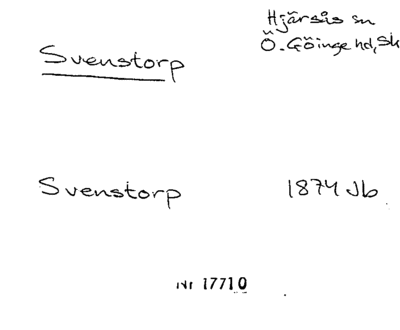 Hjärsås sn
Svenstorp
Ö. Göinge hd, Sk
Svenstorp
1874 Jb
Nr 17710